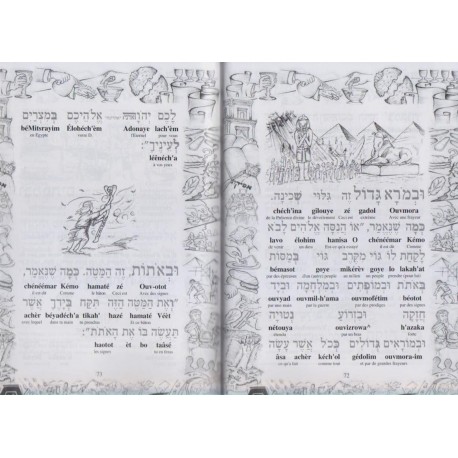 וּבְמֹרָא גָּדוֹל זֶה גִּלּוּי שְׁכִינָה.
chéch'ina gilouye zé gadol Ouvmora
de la Présence divine le dévoilement C'est ceci extrême Avec une frayeur
כְּמָה שֶׁנֶּאֱמַר, "אוֹ הֲנִסָּה אֱלֹהִים לָבֹא
lavo élohim hanisa O chénéémar Kémo
de venir un dieu Est-ce qu'a essayé Ou est dit Comme
לָקַחַת לוֹ גוֹי מִקֶּרֶב גּוֹי בְּמַסֹּת
bémasot goye mikérèv goye lo lakah'at
par des épreuves un peuple
בְּאֹתֹת וּבְמוֹפְתִים וּבְמִלְחָמָה וּבְיָד
ouvyad ouvmilh'ama ouvmofétim béotot
par une main par la guerre par des prodiges par des signes
חֲזָקָה וּבִזְרוֹעַ נְטוּיָה
nétouya ouvizerowa^ h'azaka
étendu par un bras forte
וּבְמוֹרָאִים גְּדֹלִים כְּכֹל אֲשֶׁר עָשָׂה
âsa achèr kéch'ol gédolim ouvmora-im
ce qu'a fait comme tout et par de grandes frayeurs
72
לָכֶם יְהוָה אֱלֹהֵיכֶם בְּמִצְרַיִם
béMitsrayim Élohéch'èm Adonaye lach'èm
en Egypte votre D. l'Éternel pour vous
לְעֵינֶיךָ":
léénéch'a
à vos yeux
וּבְאֹתוֹת, זֶה הַמַּטֶּה, כְּמָה שֶׁנֶּאֱמַר,
chénéémar Kémo hamaté zé Ouv-otot
il est dit Comme le bâton C'est ceci Avec des signes
"וְאֶת הַמַּטֶּה הַזֶּה תִּקַּח בְּיָדְךָ אֲשֶׁר
achèr béyadéch'a tikah' hazé hamaté Véèt
avec lequel dans ta main tu prendras Et ce bâton
תַּעֲשֶׂה בּוֹ אֶת הָאֹתֹת":
haotot èt bo taâsé
les signes tu en feras
73